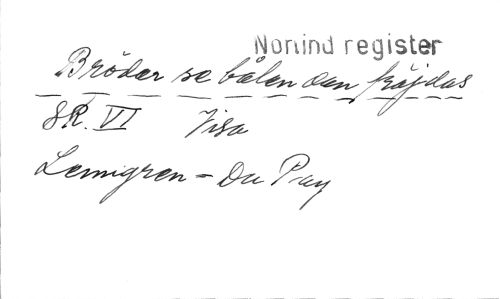 Norlind register
Bröder se bålen den fröjdas
SR. VI Visa
Lenngren - Du Puy